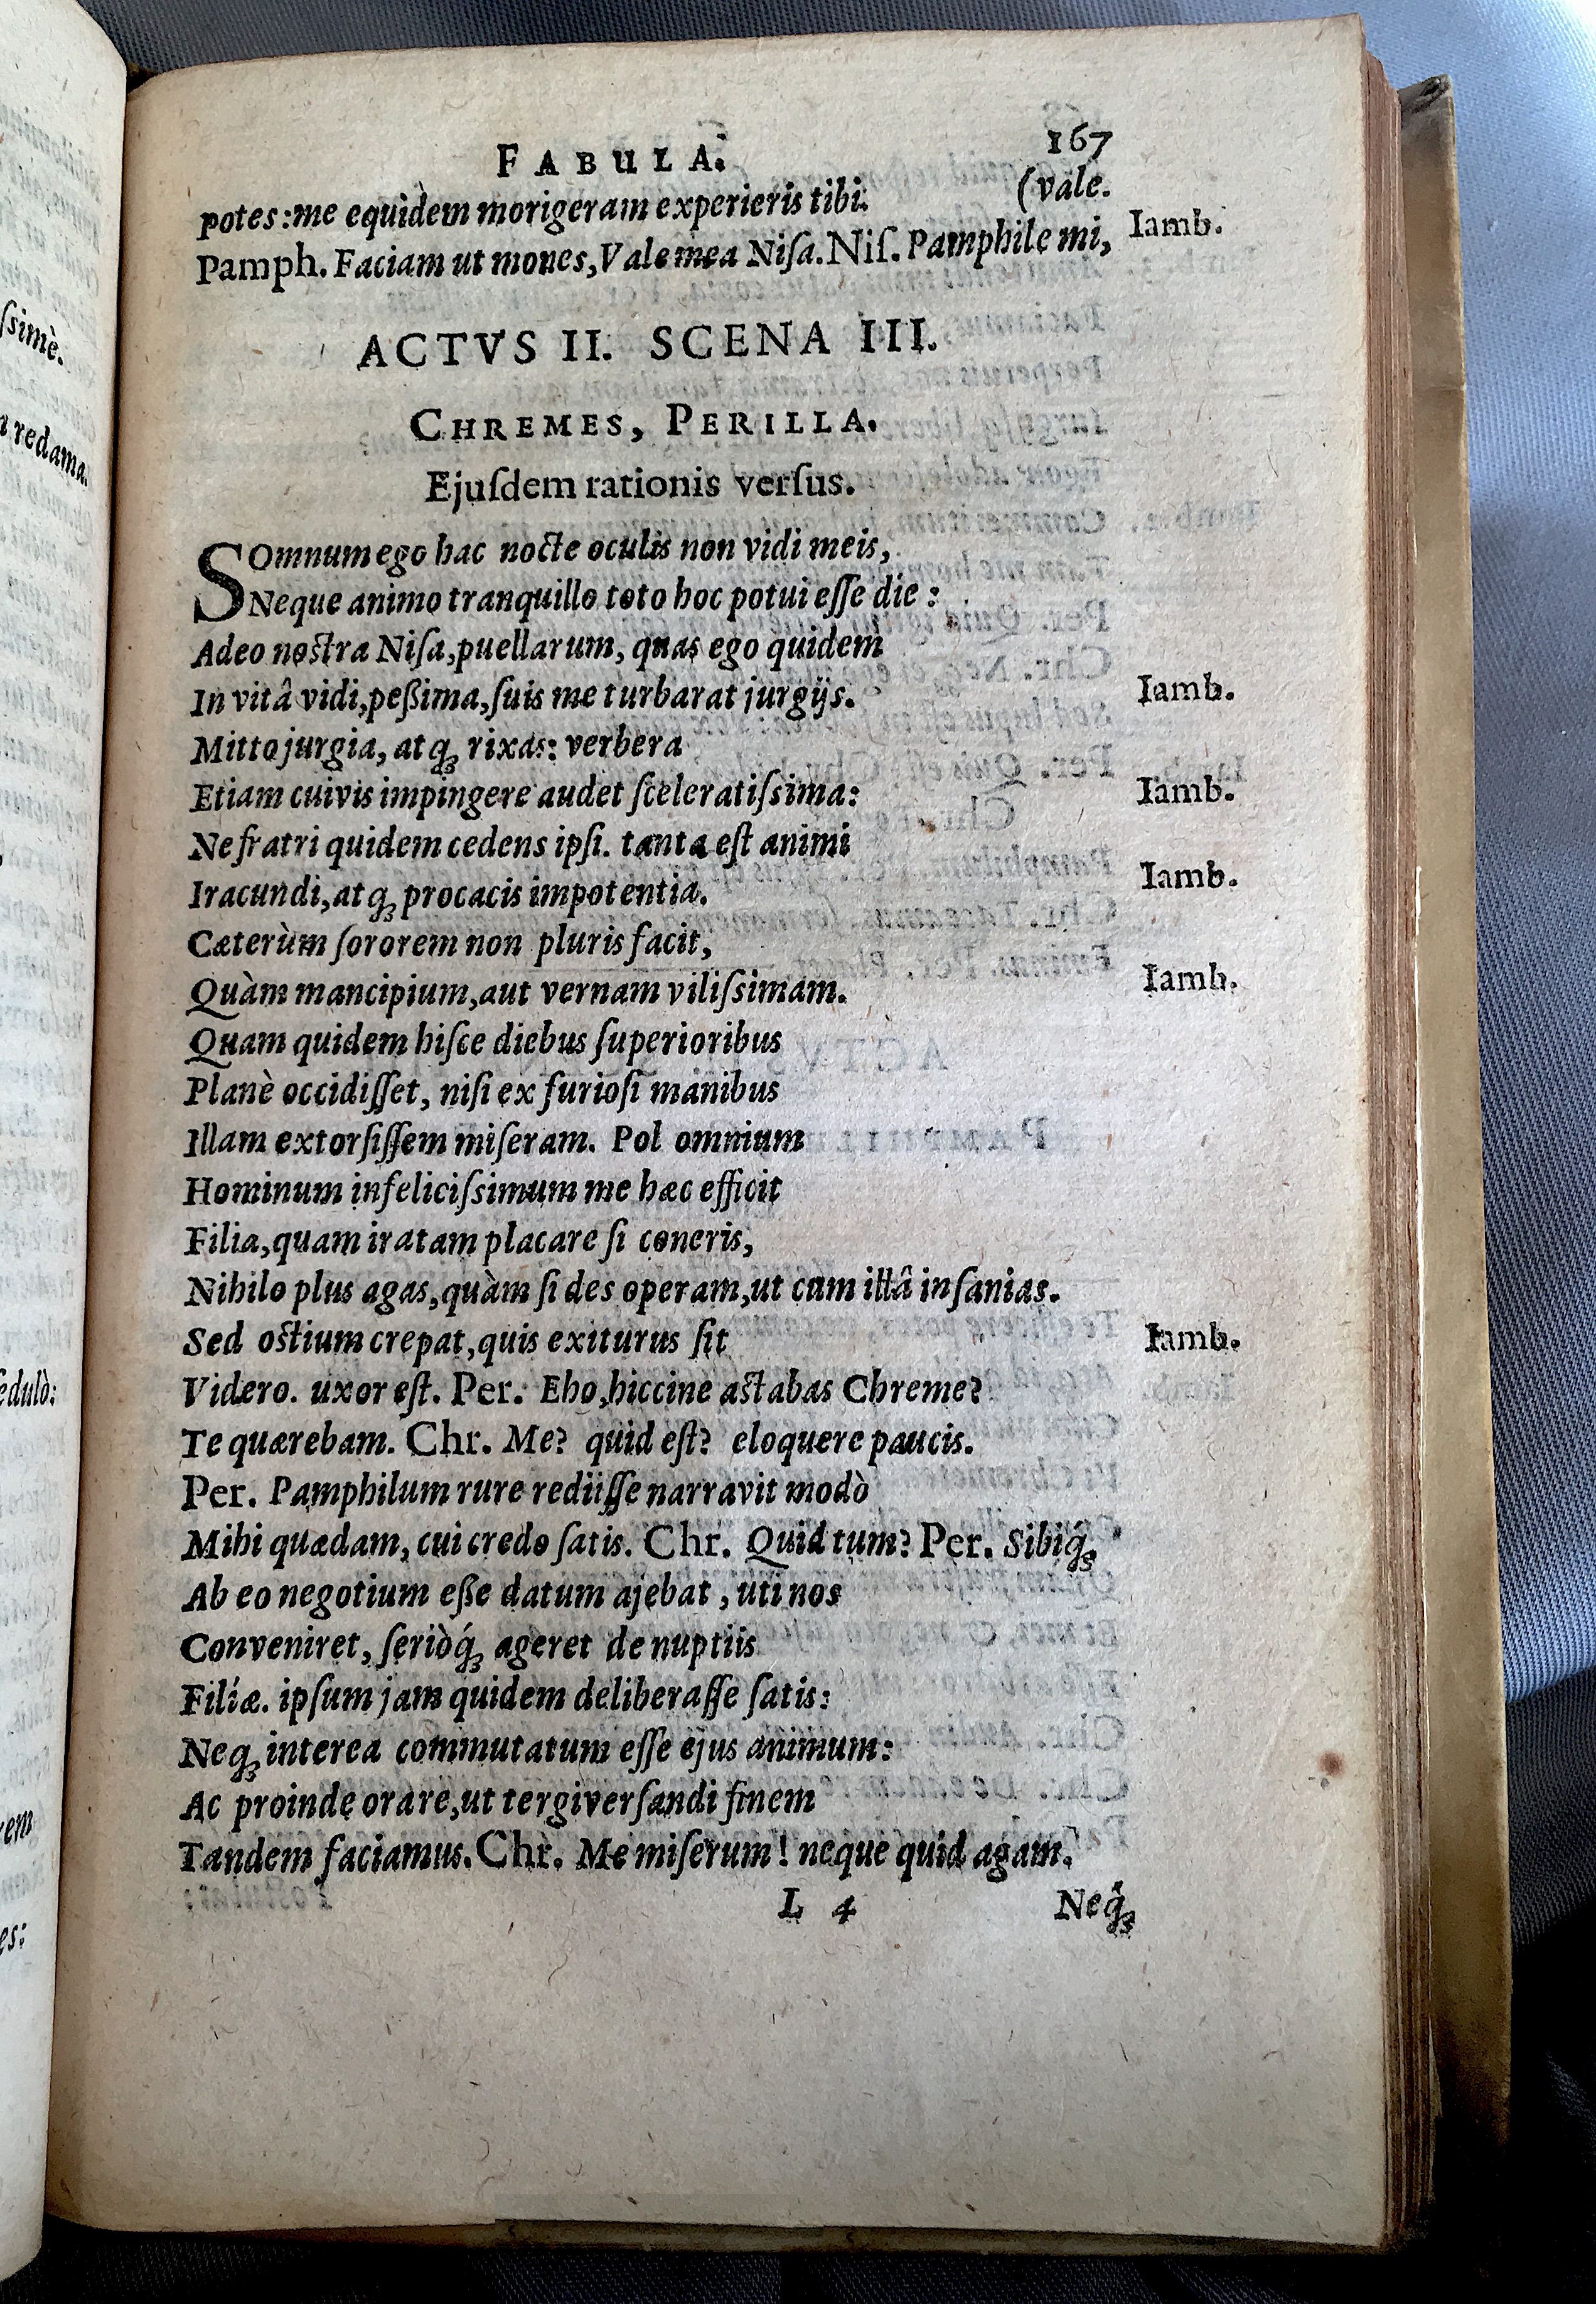 FABULA. 167
potes:me equidem morigeram experieris tibi. (vale.
Pamph. Faciam ut mones,Vale mea Niſa. Niſ. Pamphile mi, Iamb.
ACTVS II. SCENA III.
CHREMES, PERILLA.
Ejuſdem rationis verſus.
SOmnum ego hac nocte oculis non vidi meis,
Neque animo tranquillo toto hoc potui eſſe die :
Adeo noſtra Niſa,puellarum, quas ego quidem
In vitâ vidi,peßima,ſuis me turbarat jurgijs. Iamb.
Mitto jurgia, atq; rixas: verbera
Etiam cuivis impingere audet ſceleratiſsima: Iamb.
Ne fratri quidem cedens ipſi. tanta eſt animi
Iracundi,atq; procacis impotentia. Iamb.
Cæterùm ſororem non pluris facit,
Quàm mancipium,aut vernam viliſsimam. Iamb.
Quam quidem hiſce diebus ſuperioribus
Planè occidiſſet, niſi ex furioſi manibus
Illam extorſiſſem miſeram. Pol omnium
Hominum infeliciſsimum me hæc efficit
Filia,quam iratam placare ſi coneris,
Nihilo plus agas,quàm ſi des operam,ut cum illâ inſanias.
Sed oſtium crepat,quis exiturus ſit Iamb.
Videro. uxor eſt. Per. Eho,hiccine aſtabas Chreme?
Te quærebam. Chr. Me? quid eſt? eloquere paucis.
Per. Pamphilum rure rediiſſe narravit modò
Mihi quædam, cui credo ſatis. Chr. Quid tum? Per. Sibiq́;
Ab eo negotium eße datum ajebat , uti nos
Conveniret, ſeriòq́; ageret de nuptiis
Filiæ. ipſum jam quidem deliberaſſe ſatis:
Neq; interea commutatum eſſe ejus animum:
Ac proinde orare,ut tergiverſandi finem
Tandem faciamus. Chr. Me miſerum! neque quid agam.
L 4 Neq́;